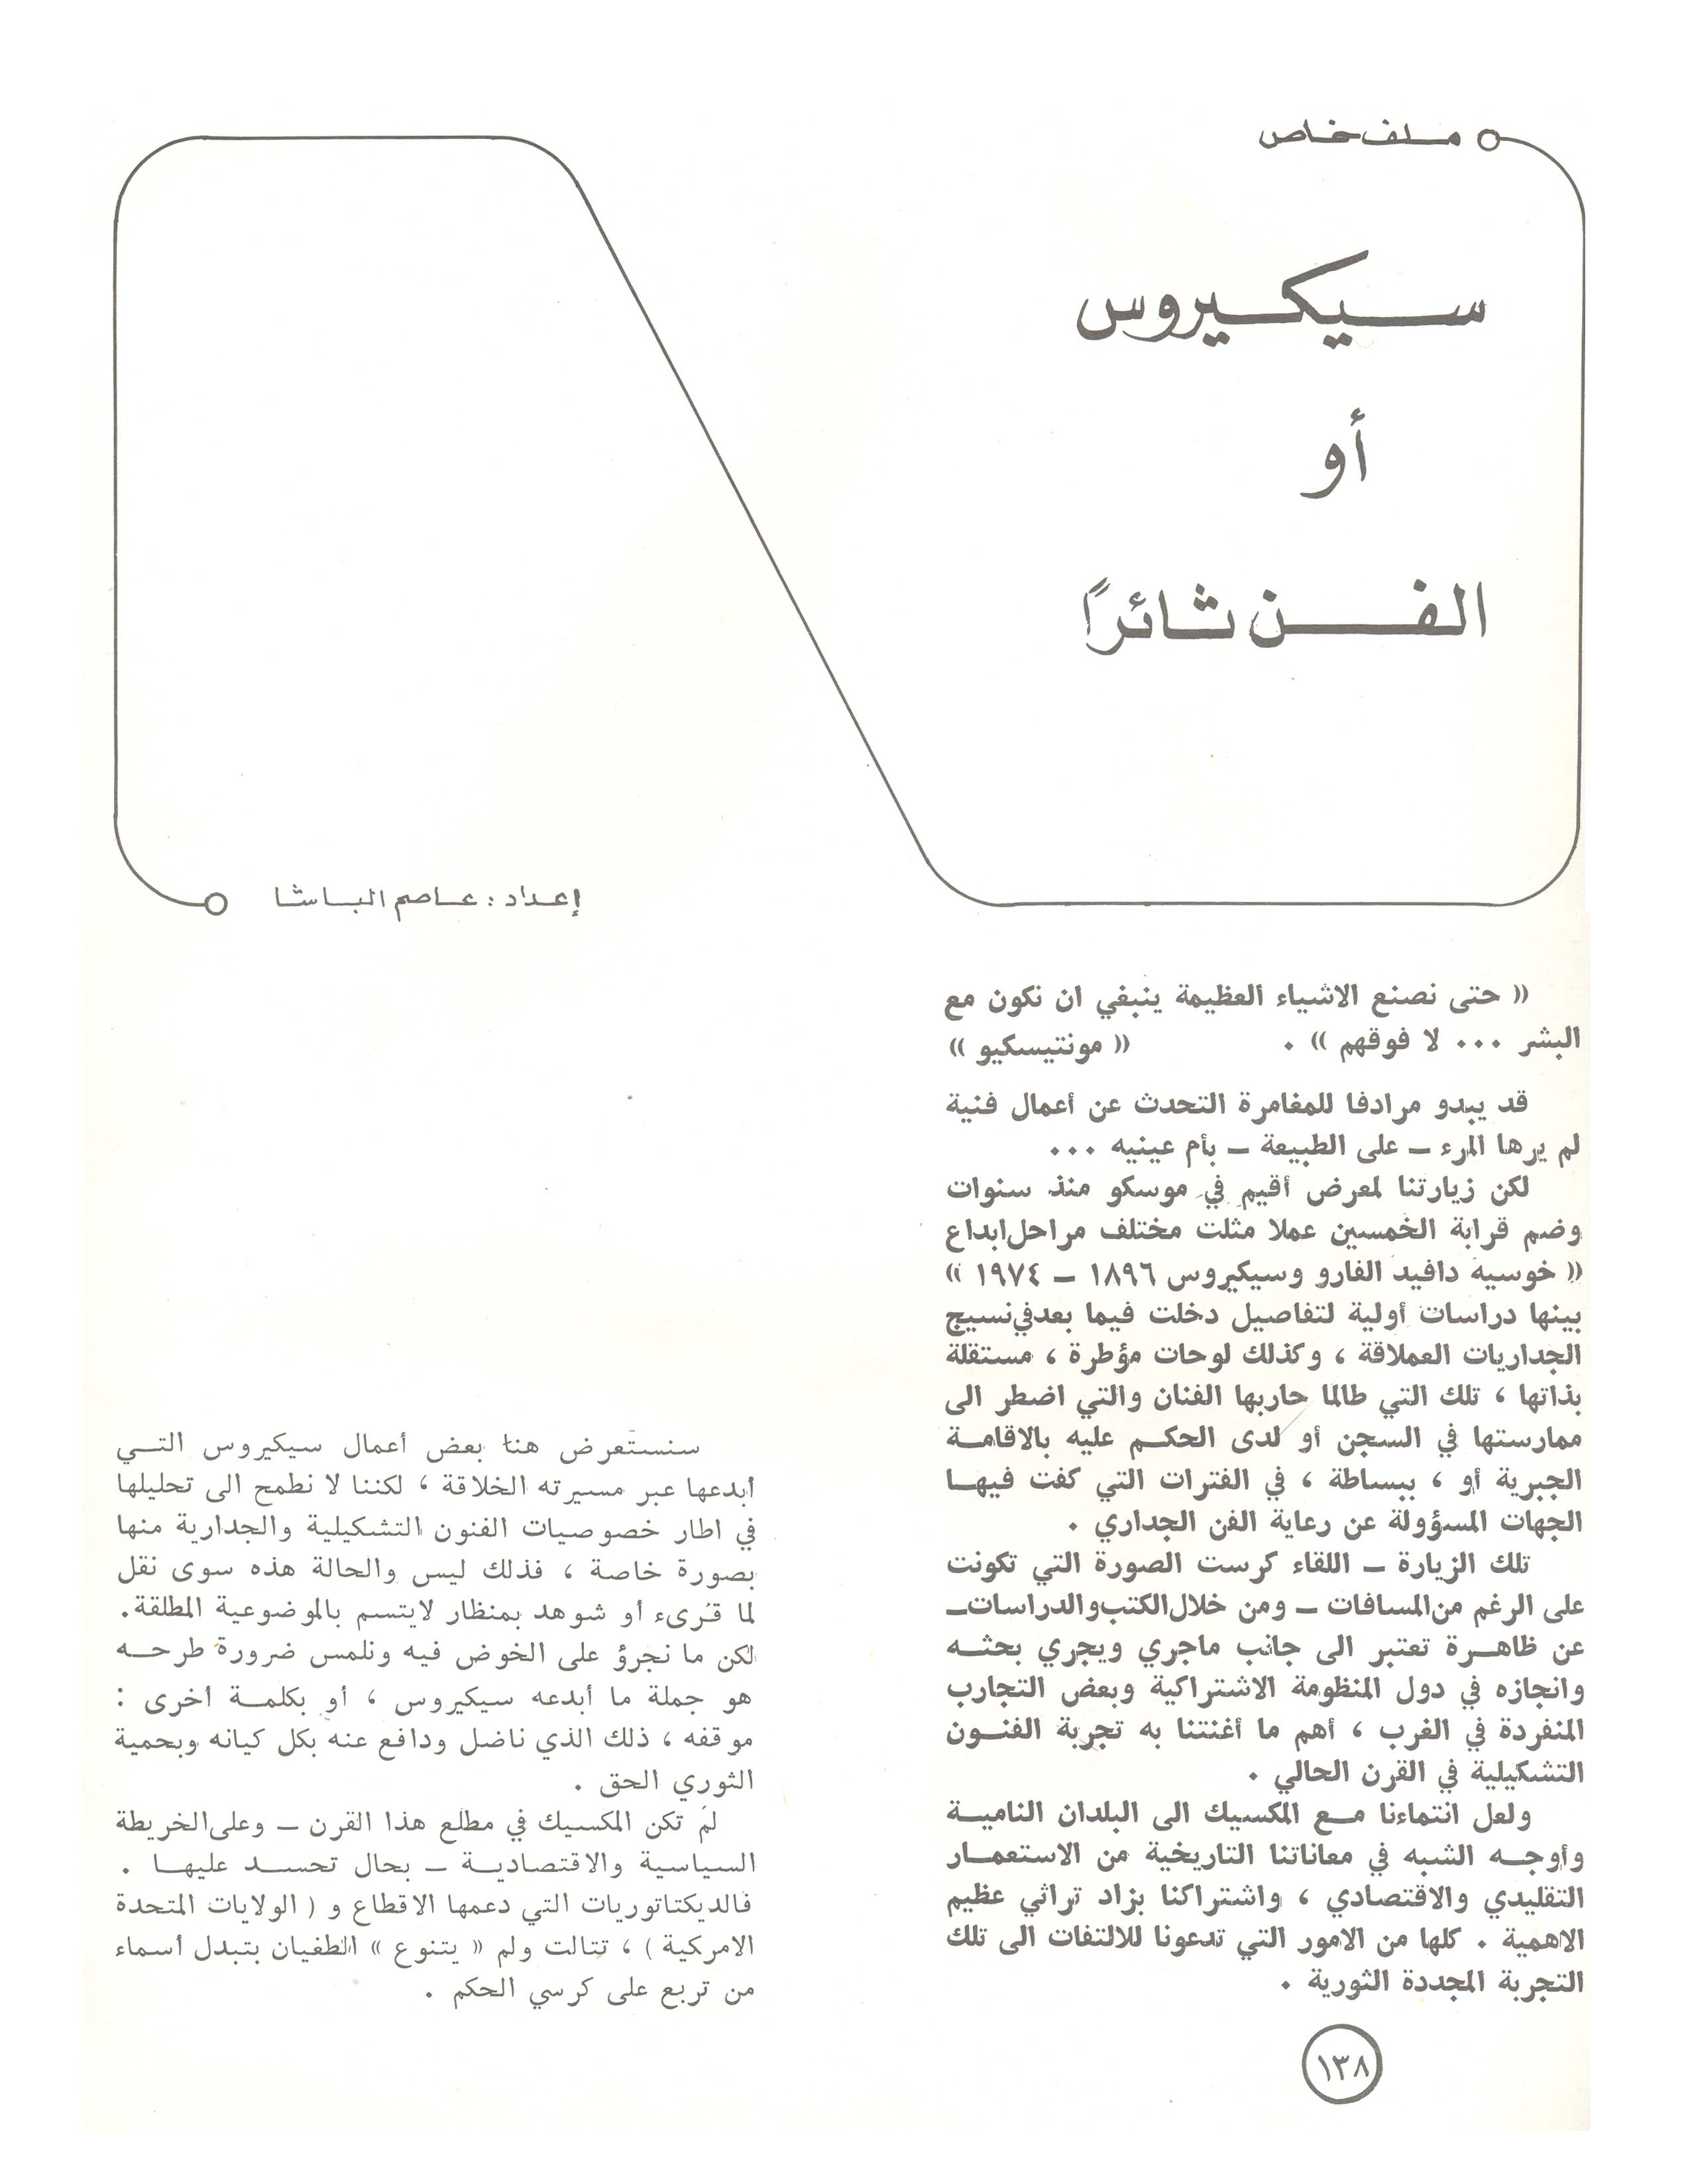 ملف خاص
سيكيروس
أو
الفن ثائراً
إعداد : عاصم الباشا
« حتى نصنع الاشياء العظيمة ينبغي ان نكون مع
البشر ... لا فوقهم » . « مونتيسكيو »
قد يبدو مرادفا للمغامرة التحدث عن أعمال فنية
لم يرها المرء – على الطبيعة – بأم عينيه ...
لكن زيارتنا لمعرض أقيم في موسكو منذ سنوات
وضم قرابة الخمسين عملا مثلت مختلف مراحل ابداع
« خوسيه دافيد الفارو وسيكيروس ١٨٩٦ – ١٩٧٤ »
بينها دراسات أولية لتفاصيل دخلت فيما بعد في نسيج
الجداريات العملاقة ، وكذلك لوحات مؤطرة ، مستقلة
بذاتها ، تلك التي طالما حاربها الفنان والتي اضطر الى
ممارستها في السجن أو لدى الحكم عليه بالاقامة
الجبرية أو ، ببساطة ، في الفترات التي كفت فيها
الجهات المسؤولة عن رعاية الفن الجداري .
تلك الزيارة – اللقاء كرست الصورة التي تكونت
على الرغم من المسافات – ومن خلال الكتب والدراسات–
عن ظاهرة تعتبر الى جانب ماجري ويجري بحثه
وانجازه في دول المنظومة الاشتراكية وبعض التجارب
المنفردة في الغرب ، أهم ما أغنتنا به تجربة الفنون
التشكيلية في القرن الحالي .
ولعل انتماءنا مع المكسيك الى البلدان النامية
وأوجه الشبه في معاناتنا التاريخية من الاستعمار
التقليدي والاقتصادي ، واشتراكنا بزاد تراثي عظيم
الاهمية . كلها من الامور التي تدعونا للالتفات الى تلك
التجربة المجددة الثورية .
سنستعرض هنا بعض أعمال سيكيروس التي
أبدعها عبر مسيرته الخلاقة ، لكننا لا نطمح الى تحليلها
في اطار خصوصيات الفنون التشكيلية والجدارية منها
بصورة خاصة ، فذلك ليس والحالة هذه سوى نقل
لما قرىء أو شوهد بمنظار لايتسم بالموضوعية المطلقة.
لكن ما نجرؤ على الخوض فيه ونلمس ضرورة طرحه
هو جملة ما أبدعه سيكيروس ، أو بكلمة أخرى :
موقفه ، ذلك الذي ناضل ودافع عنه بكل كيانه وبحمية
الثوري الحق .
لم تكن المكسيك في مطلع هذا القرن – وعلى الخريطة
السياسية والاقتصادية – بحال تحسد عليها .
فالديكتاتوريات التي دعمها الاقطاع و ( الولايات المتحدة
الامركية ) ، تتالت ولم « يتنوع » الطغيان بتبدل أسماء
من تربع على كرسي الحكم .
١٣٨